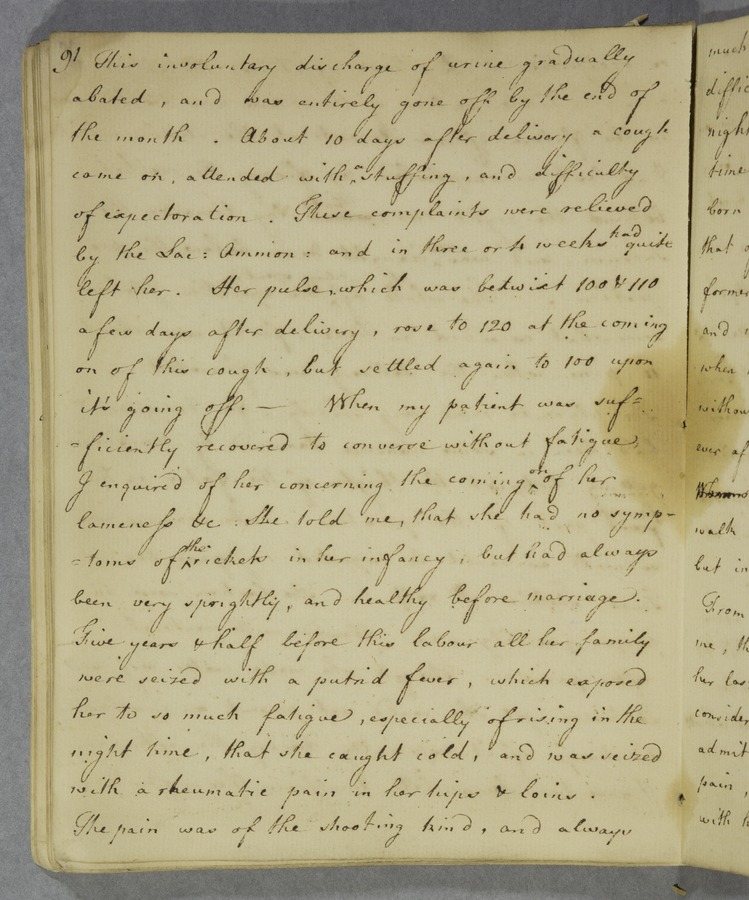 91 This involuntary discharge of urine gradually
abated, and was entirely gone off by the end of
the month. About 10 days after delivery a cough
came on, attended with a stuffing, and difficulty
of expectoration. These complaints were relieved
by the Lac: Ammon: and in three or 4 weeks had quite
left her. Her pulse, which was betwixt 100 & 110
a few days after delivery, rose to 120 at the coming
on of this cough, but settled again to 100 upon
it's going off. — When my patient was suf=
=ficiently recovered to converse without fatigue,
I enquired of her concerning the coming on of her
lameness &c. She told me, that she had no symp-
=toms of the rickets in her infancy, but had always
been very sprightly, and healthy before marriage.
Five years & half before this labour all her family
were seized with a putrid fever, which exposed
her to so much fatigue, especially of rising in the
night time, that she caught cold, and was seized
with a rheumatic pain in her hips & loins.
The pain was of the shooting kind, and always
much
diffic
night
time
born
that
former
and
when
without
ever af
walk
but in
From
me, th
her las
consider
admit
pain,
with h